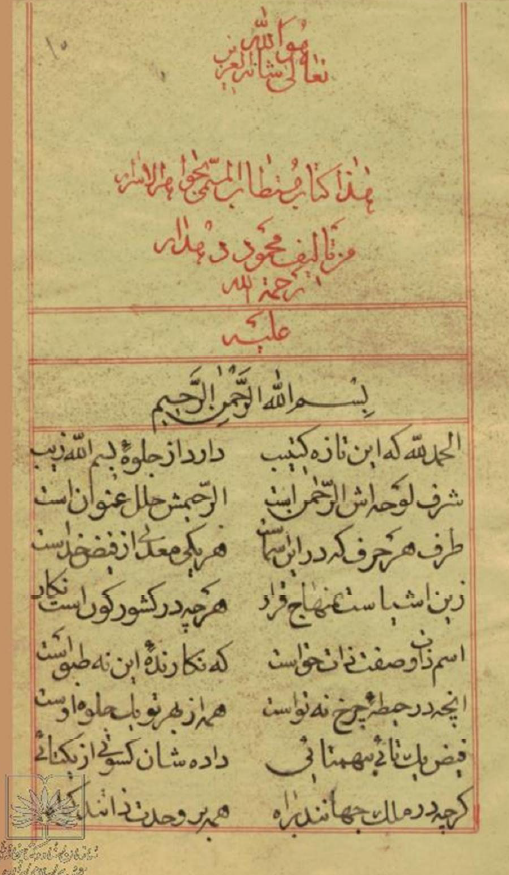 هو الله
تعالی شانه العزیز
هذا کتاب مستطاب المسمی بجواهر الاسرار
من تالیف محمود دهدار
رحمة الله
علیه
بسم الله الرحمن الرحیم
الحمد لله که این تازه کتیب دارد از جلوهٔ بسم الله زیب
شرف لوحه اش الرحمن است الرحیمش حلل عنوان است
طرف هر حرف که در این است هر یکی معدنی از فیض خداست
زین اشیا است منهاج قرار هر چه در کشور کون است نکار
اسم ذات و صفت ذات حق است که نکارندهٔ این نه طبق است
انچه در حیطهٔ چرخ نه تو است همه از بهر تو یک جلوه اوست
فیض یکتائی بیهمتائی داده شان کسوتی از یکتائی
کرچه در ملک جهانند براه همه بر وحدت ذاتند